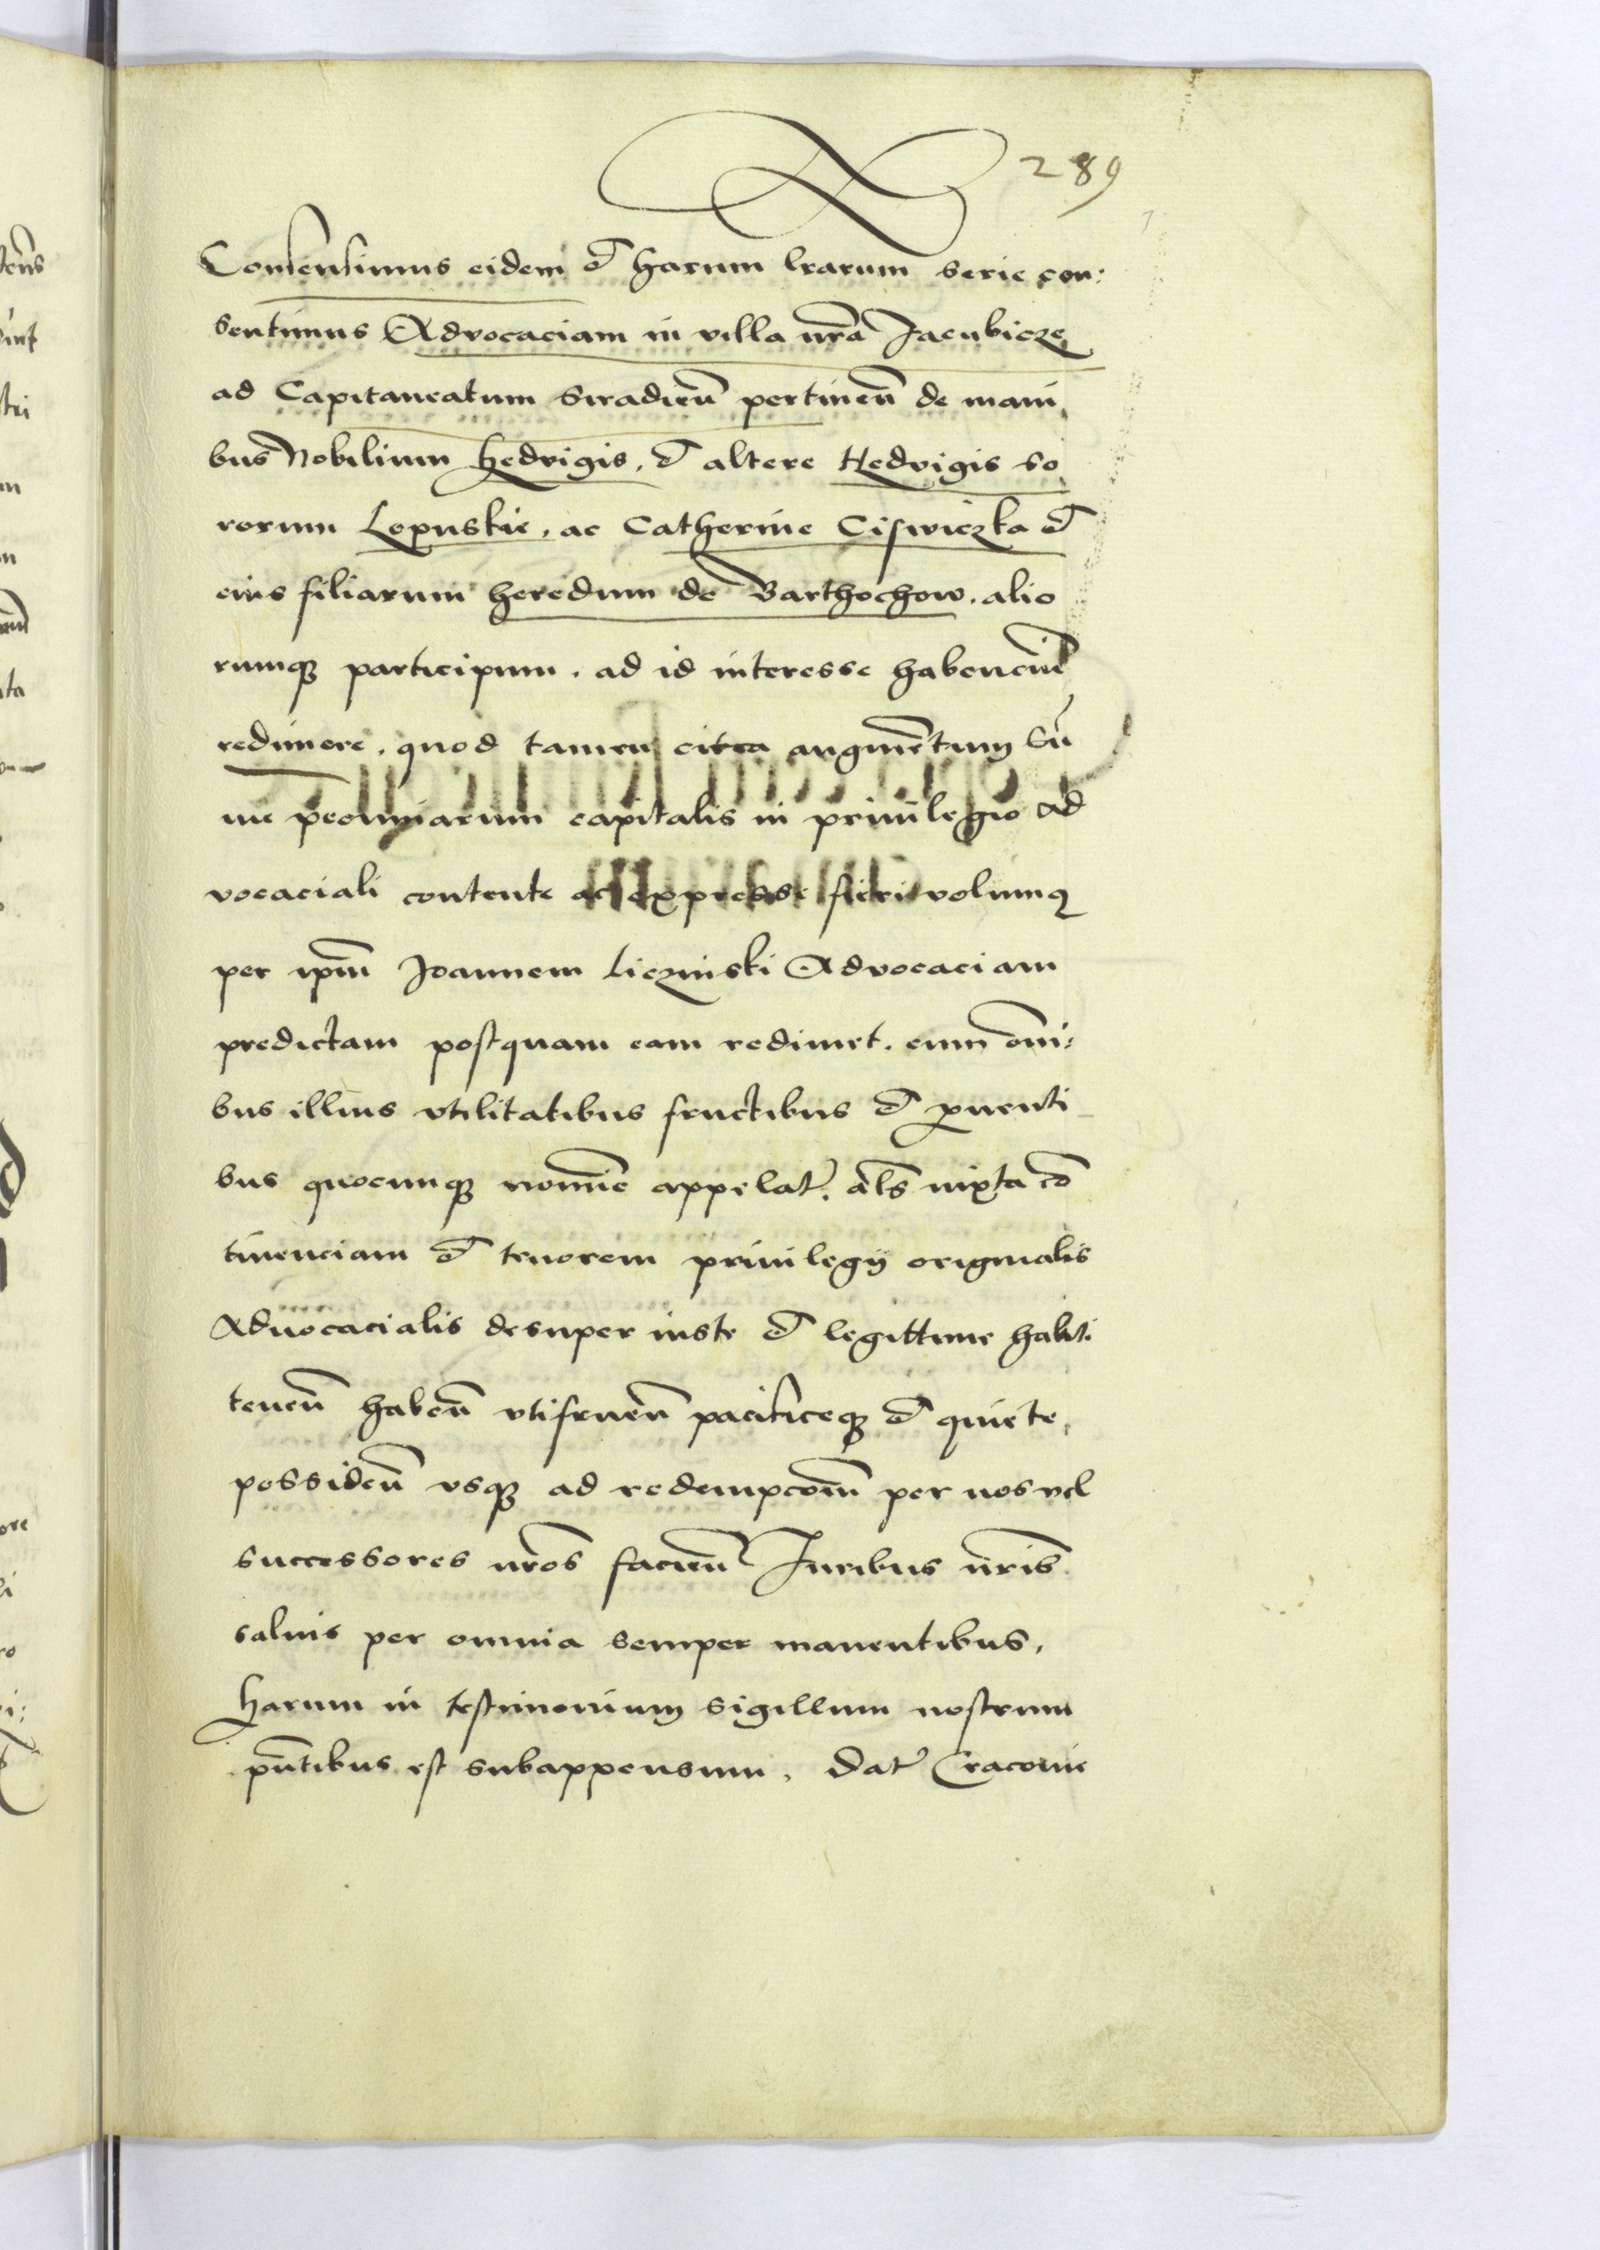 289
Consensimus eidem et harum lrarum serie con:
sentimus Advocaciam in villa nrã Jacubicze
ad Capitaneatum Siradieñ pertineñ de mani
bus Nobilium Hedvigis, et altere Hedvigis so
rorum Lopuskie, ac Catherine Ciswiczka et
eius filiarum heredum de Barthochow, alio
rumqꝫ participum, ad id interesse habenciũ
redimere, quod tamen citra augmẽtum sũ
me pecuniarum capitalis in privilegio ad
vocaciali contente ac expresse fieri volumꝯ
per ipm̃ Joannem Liczinski Advocaciam
predictam postquam eam redimet, cum om̃i:
bus illius vtilitatibus fructibus et ꝓventi
bus quocumqꝫ nomĩe appelat̃, al̃s iuxta cõ
tinenciam et tenorem privilegij originalis
Advocacialis desuper iuste et legittime habiti
teneñ habeñ vtifrueñ pacificeqꝫ et quiete,
possideñ vsqꝫ ad redempcõem̃ per nos vel
successores nr̃os facieñ Juribus nr̃is
salvis per omnia semper manentibus,
Harum in testimonium sigillum nostrum
pñtibus est subappensum, Dat̃ Cracovie